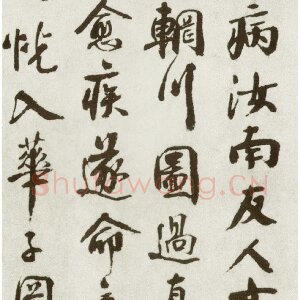 病汝南友人
輞川圖過直
愈疾遂命
恍入華子岡
Shufawang.CN